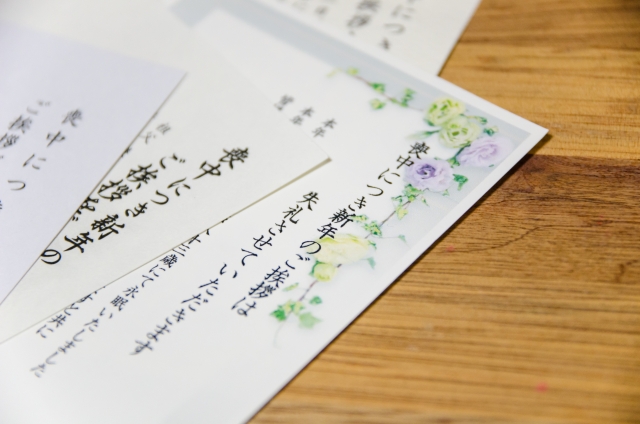 喪中につき新年のご挨拶は
失礼させていただきます
本年
歳にて永眠いたしました
すと共に
喪中につき新年の
ご挨拶をご
祖父
喪中につ
ご挨拶
につき
挨拶